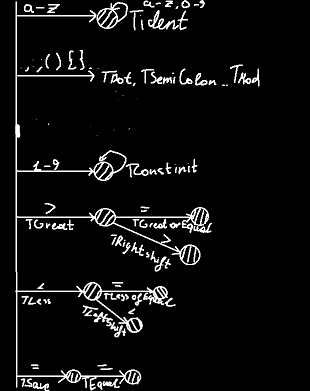 a-z a-z,0-9 TIdent
. , , ( ) { } TDot, TSemiColon .. TMod
1-9 TConstinit
> = 
TGreat TGreatorEqual
>
TRightshift
< =
TLess TLessofEqual
TLeftShift <
= =
TSave TEqual